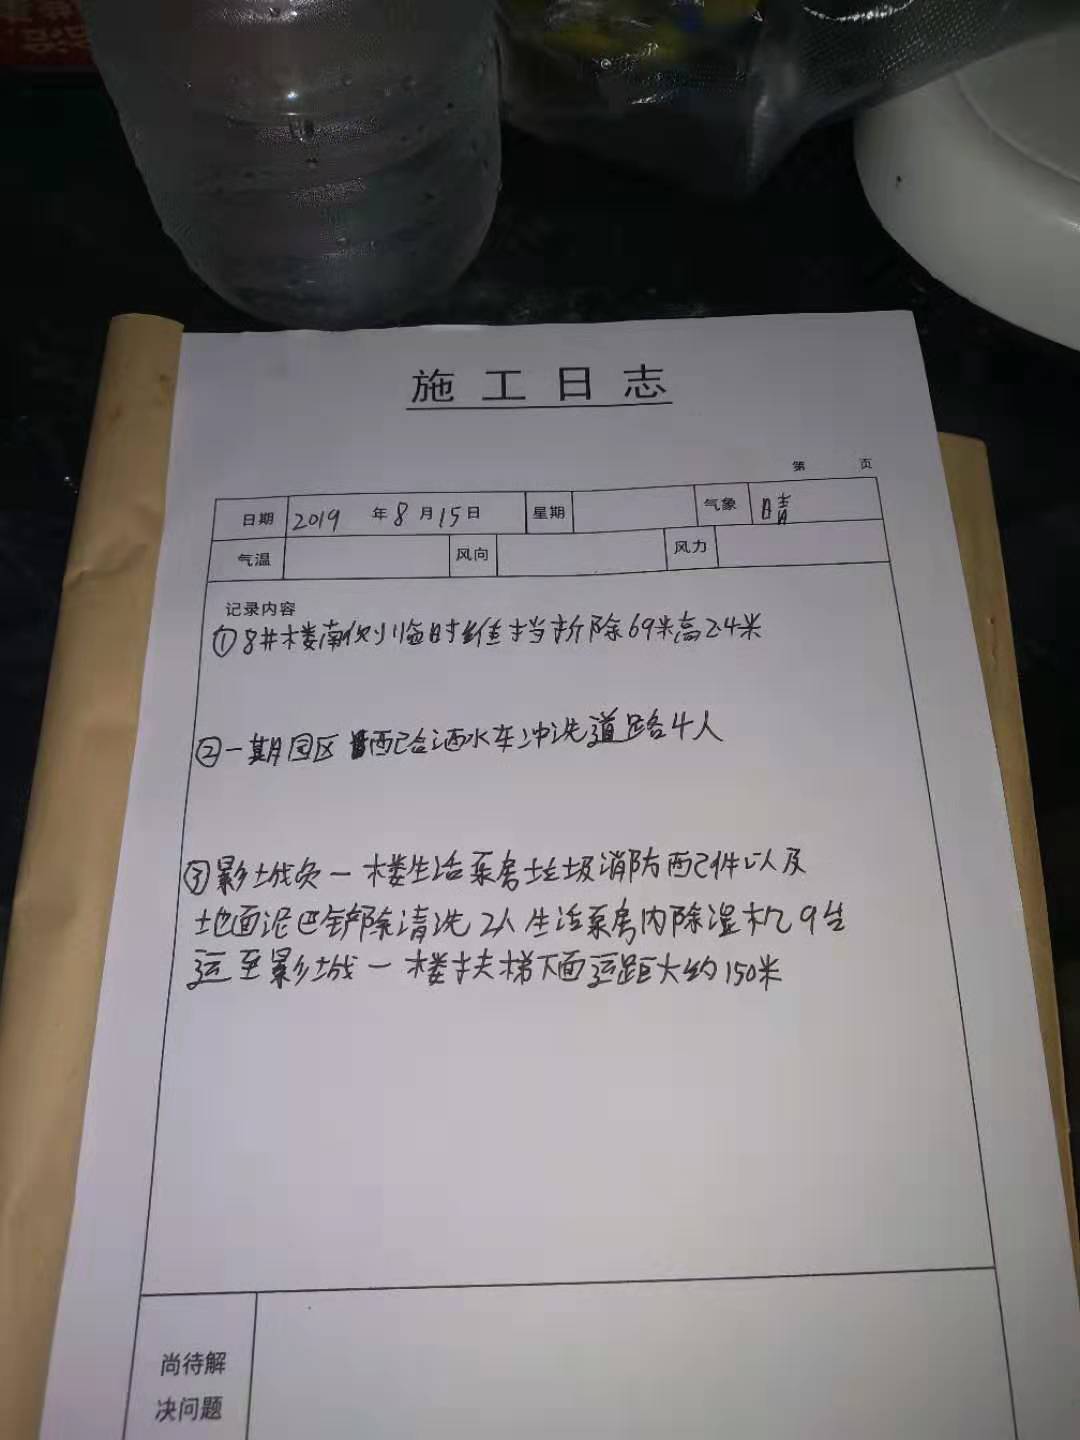 施工日志
第 页
日期 2019 年 8 月 15 日 星期 气象 晴
气温 风向 风力
记录内容
①8#楼南侧临时维挡拆除69米高2.4米
②一期园区配合洒水车冲洗道路4人
③影城负一楼生活泵房垃圾消防配件以及
地面泥巴铲除清洗2人生活泵房内除湿机9台
运至影城一楼扶梯下面运距大约150米
尚待解
决问题